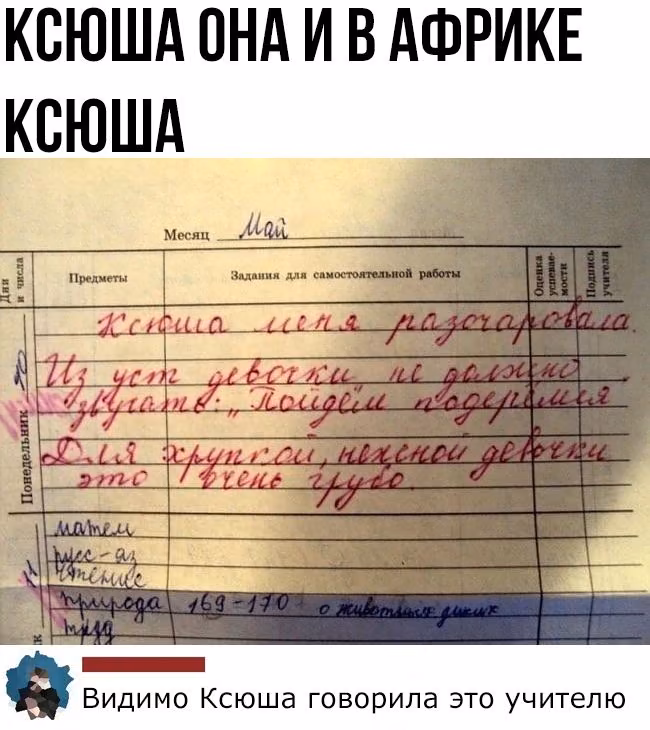 КСЮША ОНА И В АФРИКЕ
КСЮША
Месяц Май
Дни и числа
Предметы
Задания для самостоятельной работы
Оценка успеваемости
Подпись учителя
Понедельник
Ксюша меня разочаровала.
Из уст девочки не должно
звучать: „Пойдём подерёмся
Для хрупкой, нежной девочки
это очень грубо.
матем
русс-яз
чтение
природа 169-170 о животных диких
труд
Видимо Ксюша говорила это учителю